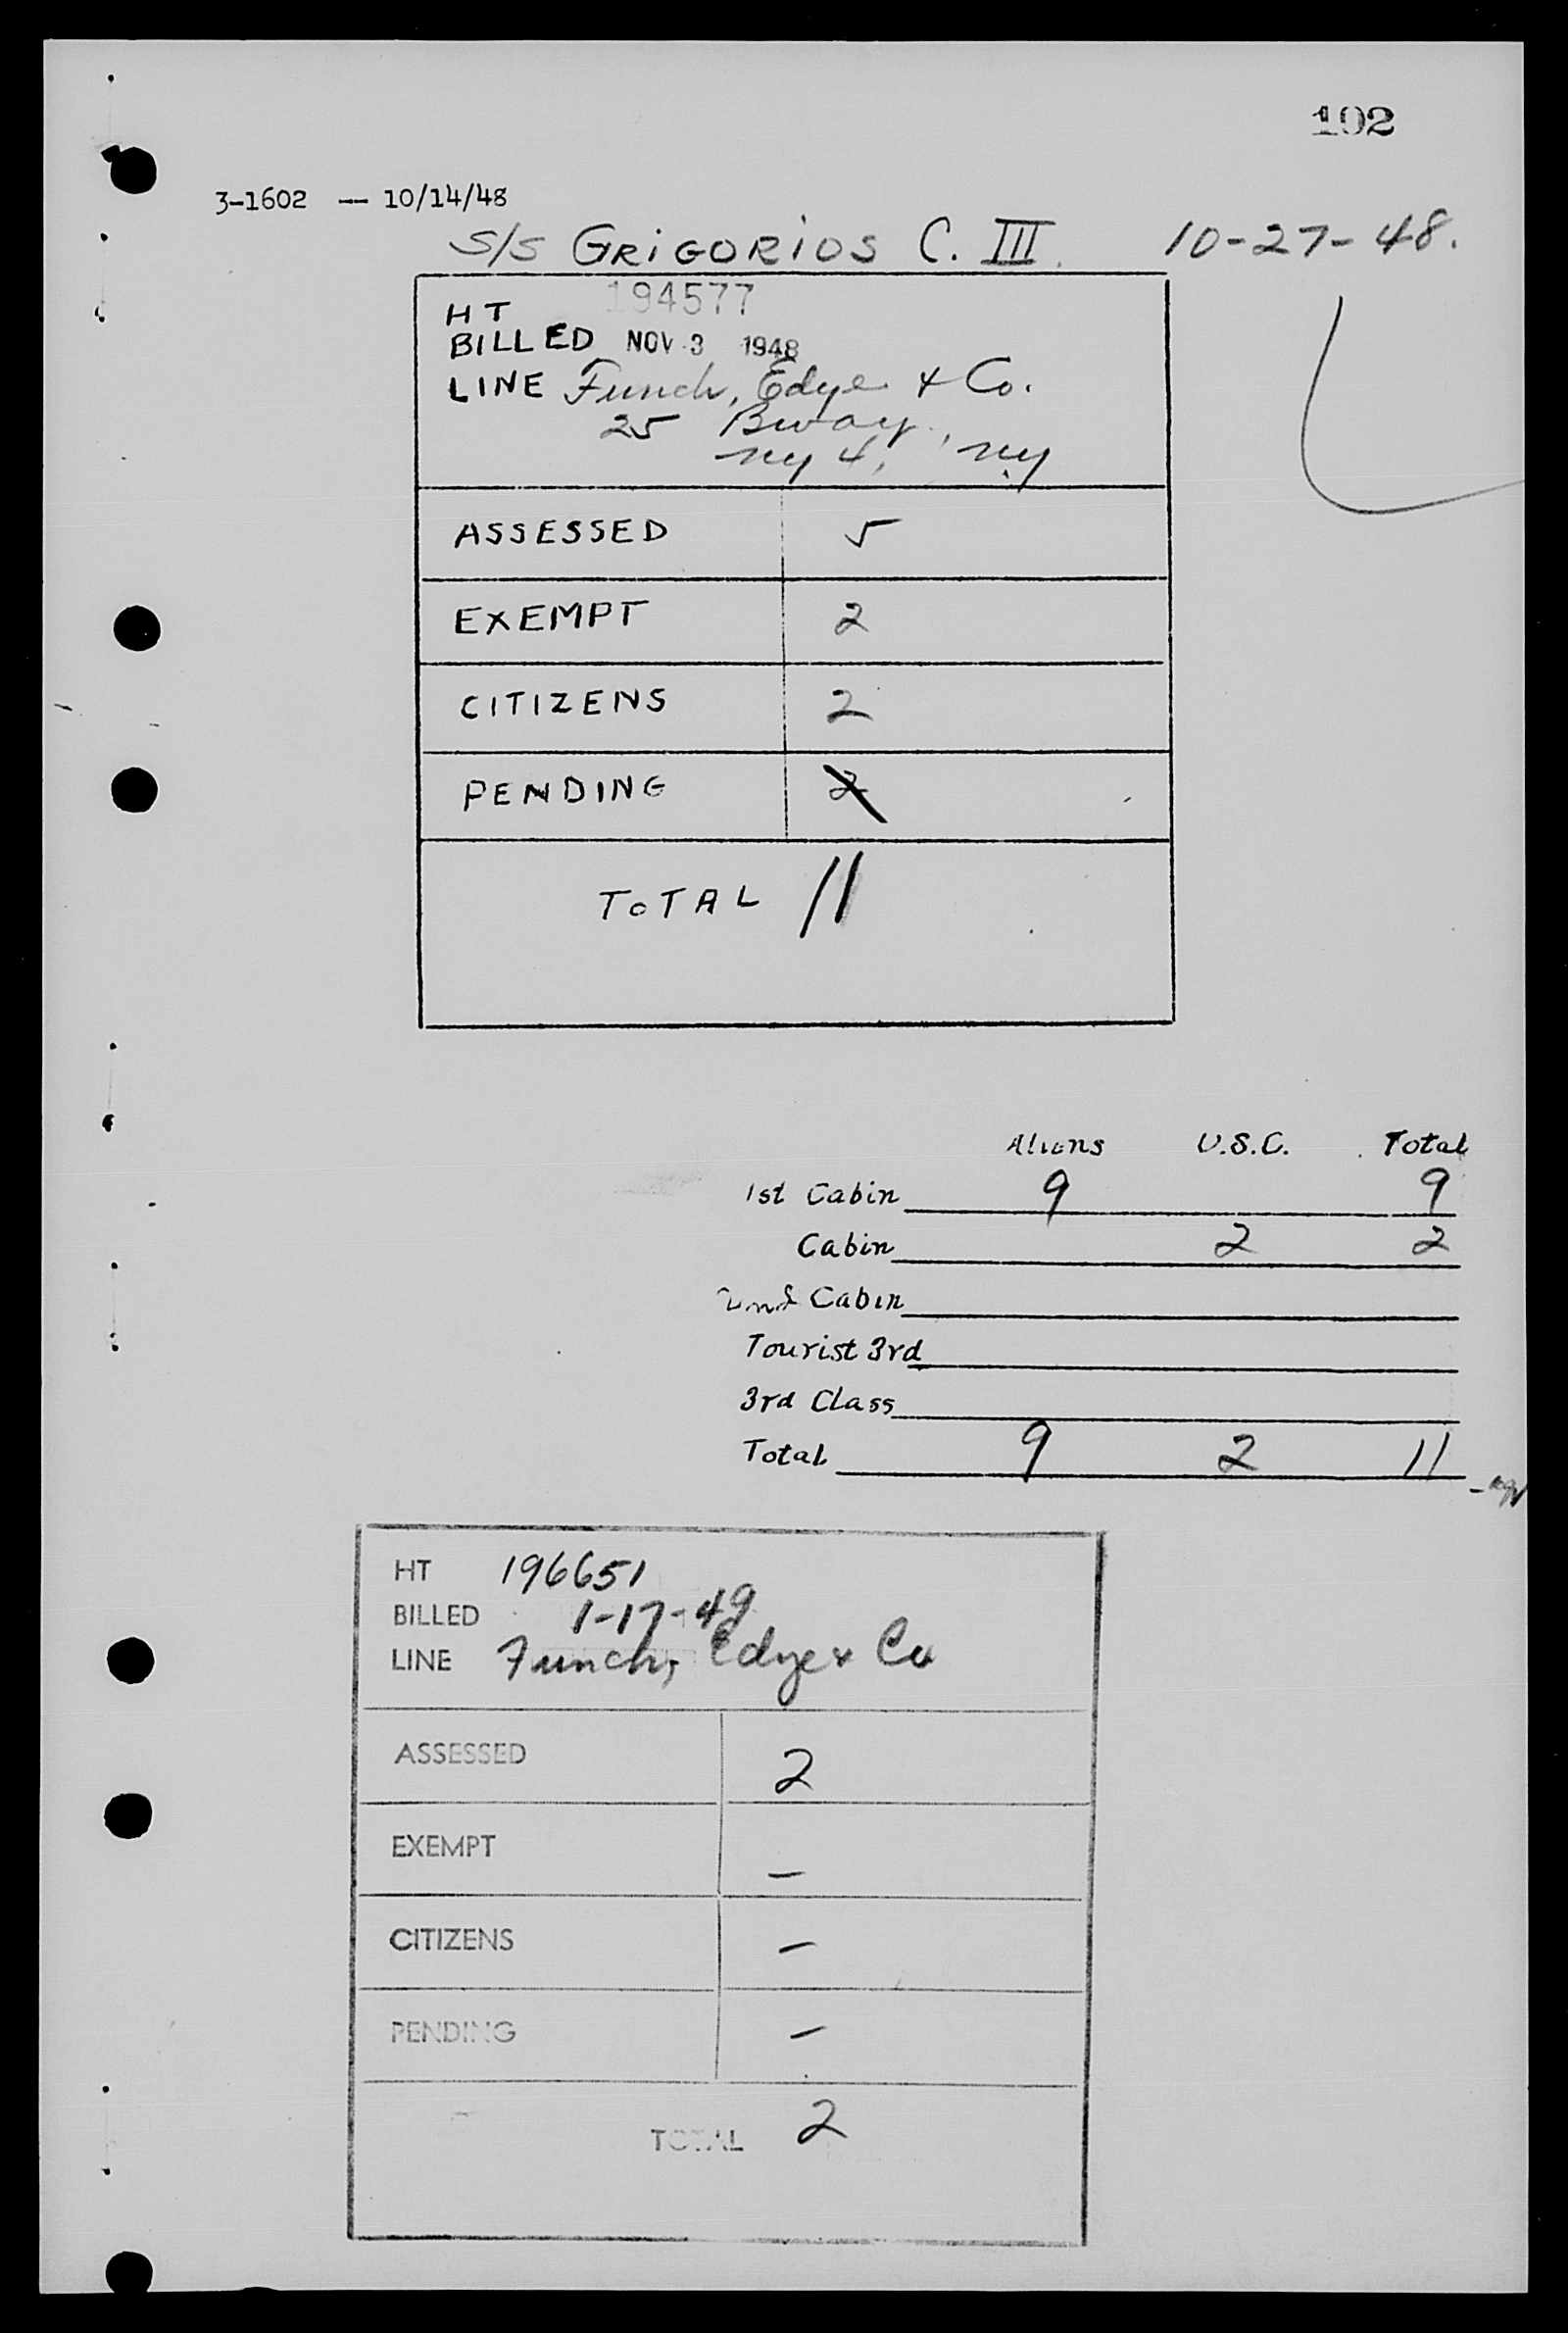 102
3-1602 -- 10/14/48
S/S GRIGORIOS C. III. 10-27-48.
HT 194577
BILLED NOV 3 1948
LINE Funch, Edye & Co.
25 Bway.,
NY 4, NY
ASSESSED 5
EXEMPT 2
CITIZENS 2
PENDING 2
TOTAL 11
Aliens U.S.C. Total
1st Cabin 9 9
Cabin 2 2
2nd Cabin
Tourist 3rd
3rd Class
Total 9 2 11
HT 196651
BILLED 1-17-49
LINE Funch, Edye & Co
ASSESSED 2
EXEMPT –
CITIZENS –
PENDING –
TOTAL 2